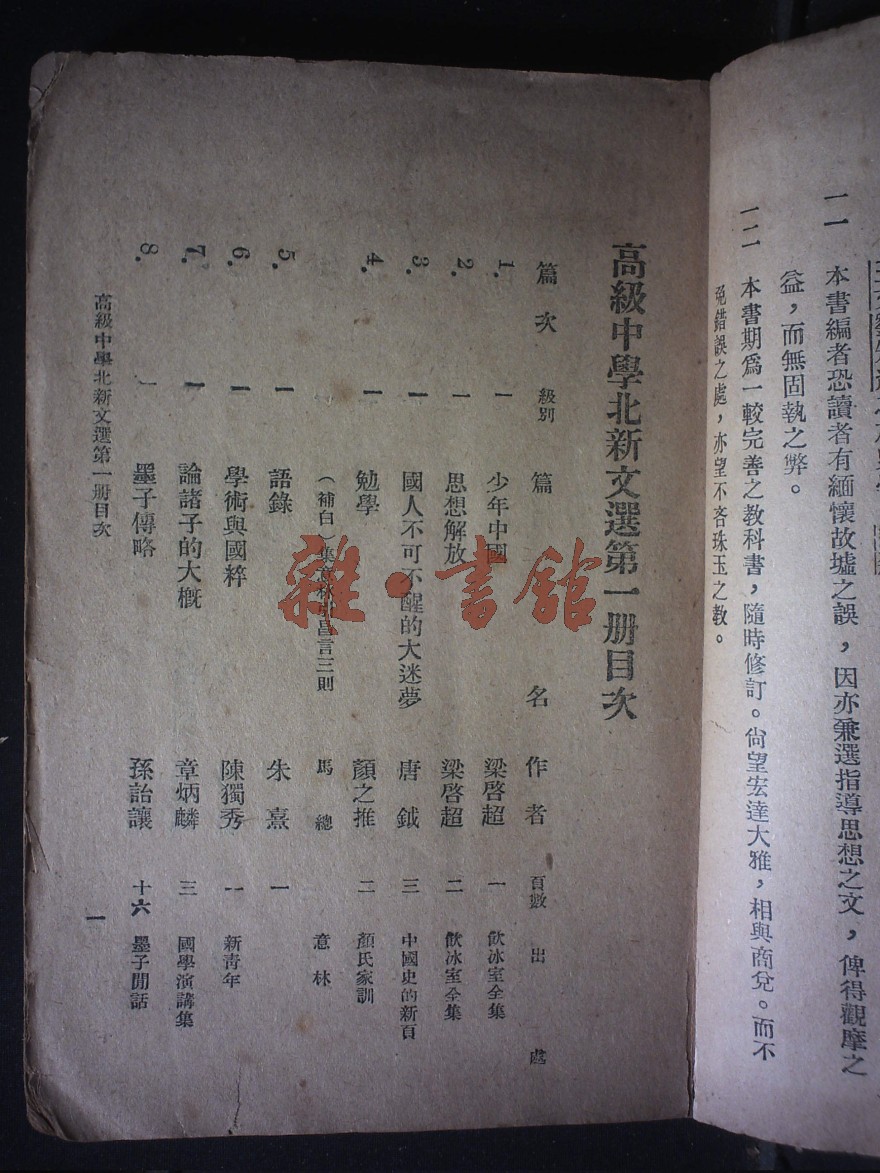 一一　本書編者恐讀者有緬懷故墟之誤，因亦兼選指導思想之文，俾得觀摩之
益，而無固執之弊。
一二　本書期爲一較完善之教科書，隨時修訂。尙望宏達大雅，相與商兌。而不
免錯誤之處，亦望不吝珠玉之教。
高級中學北新文選第一册目次
篇次　級別　篇　名　作者　頁數　出　處
1.　一　少年中國　梁啓超　一　飮冰室全集
2.　一　思想解放　梁啓超　二　飮冰室全集
3.　一　國人不可不醒的大迷夢　唐鉞　三　中國史的新頁
4.　一　勉學　顏之推　二　顏氏家訓
（補白）昌言三則　馬總　意林
5.　一　語錄　朱熹　一
6.　一　學術與國粹　陳獨秀　一　新靑年
7.　一　論諸子的大槪　章炳麟　三　國學演講集
8.　一　墨子傳略　孫詒讓　十六　墨子閒話
高級中學北新文選第一册目次
一
雜·書館